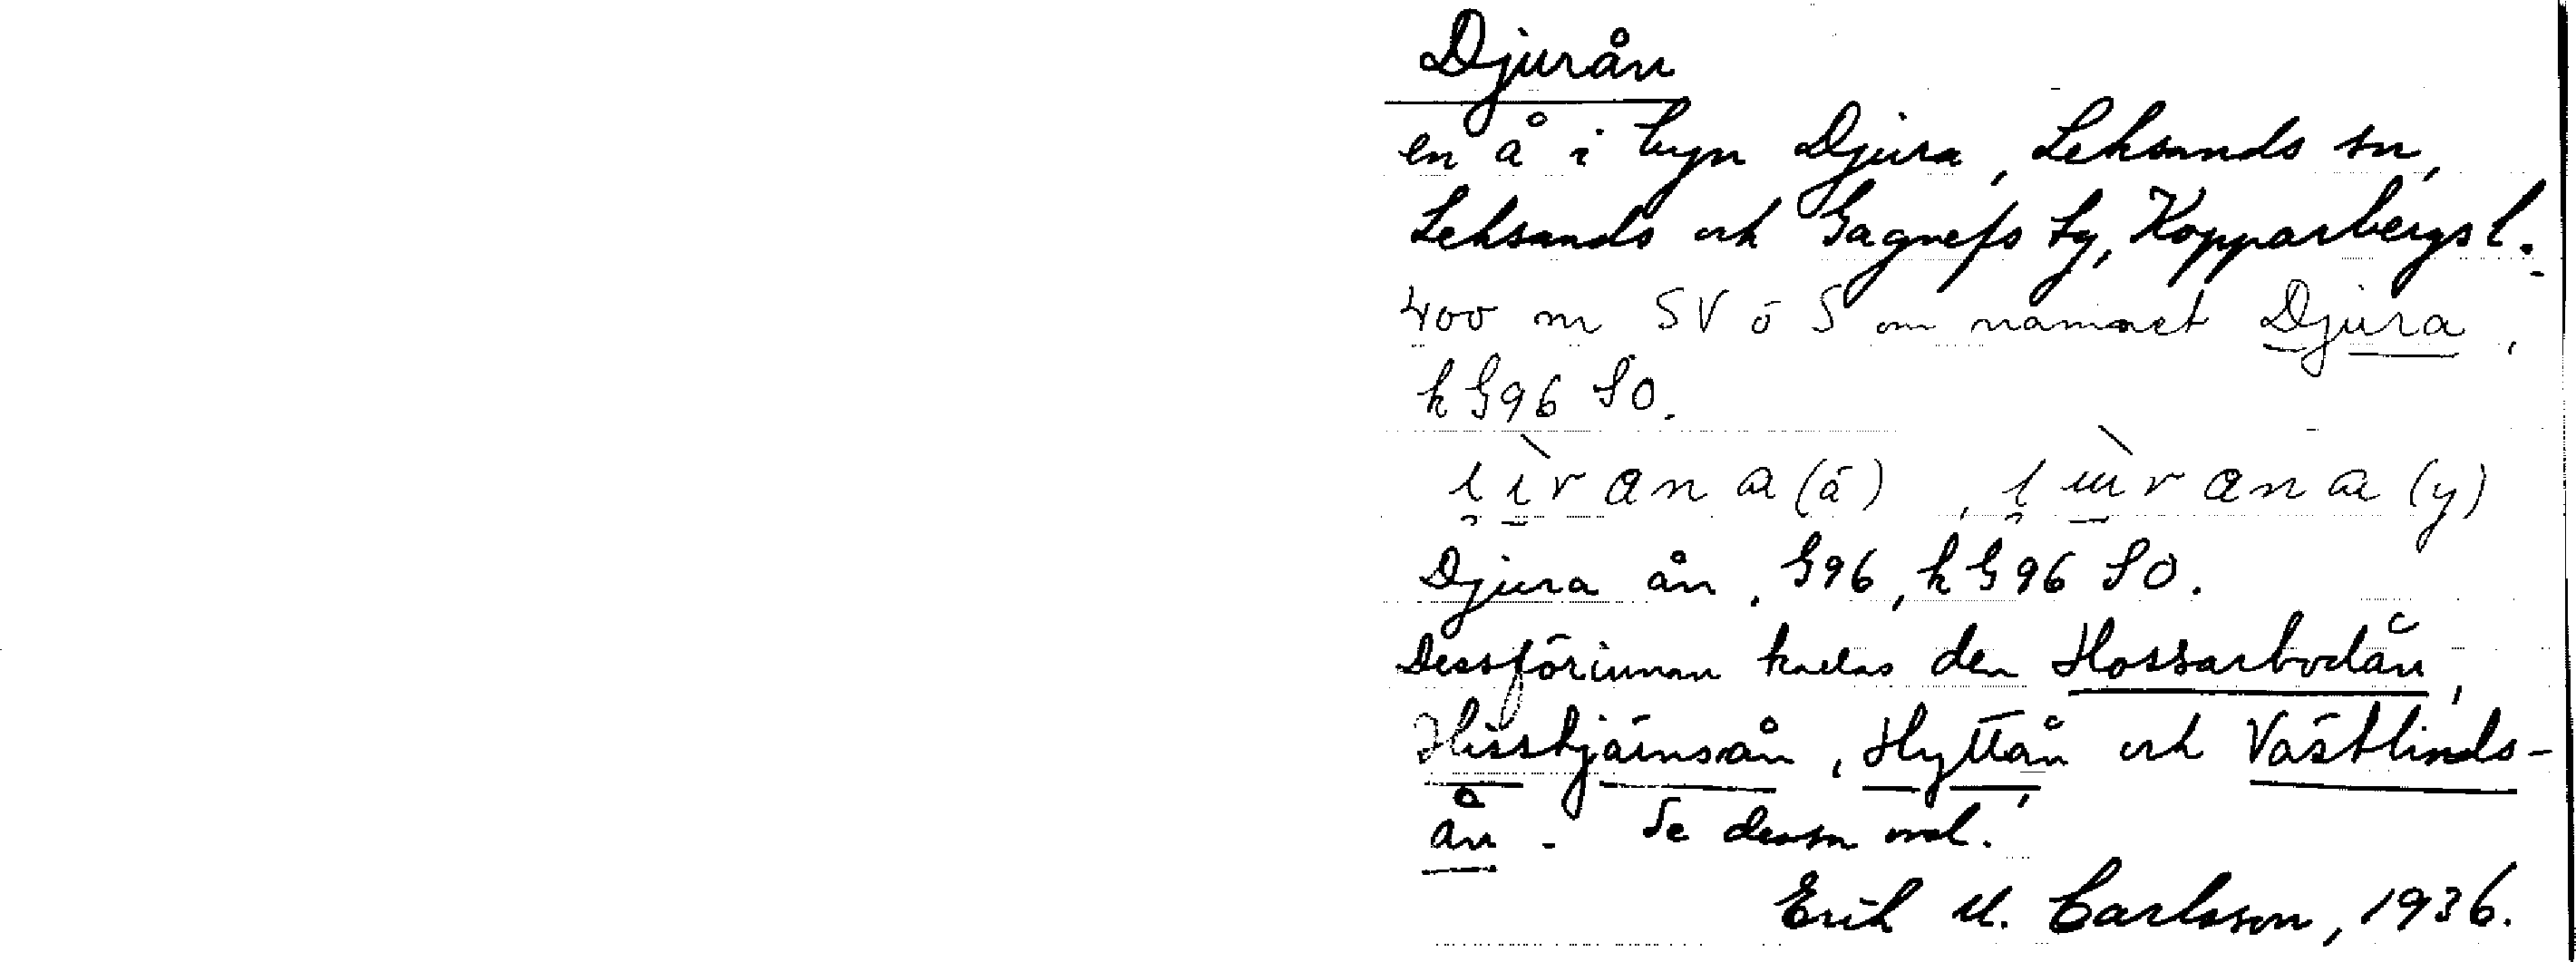 Djurån
en å i byn Djura, Leksands sn,
Leksands och Gagnefs tg, Kopparbergs l.
400 m SV ö S om namnet Djura,
k G96 SO.
(å) , (y)
Djura ån, G96, k G96 SO.
Dessförinnan kallas den Hossarbodån,
Hisstjärnsån, Hyttån och Västlinds-
ån. Se dessa ord.
Erik M. Carlsson, 1936.